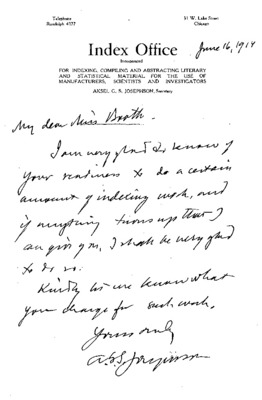 Telephone
Randolph 4777
31 W. Lake Street
Chicago
Index Office
Incorporated
June 16, 1914
FOR INDEXING, COMPILING AND ABSTRACTING LITERARY
AND STATISTICAL MATERIAL FOR THE USE OF
MANUFACTURERS, SCIENTISTS AND INVESTIGATORS
AKSEL G. S. JOSEPHSON, Secretary
My dear Miss Booth.
I am very glad to know of
your readiness to do a certain
amount of indexing work, and
if anything turns up that I
can give you, I shall be very glad
to do so.
Kindly let me know what
you charge for such work.
Yours truly
AGS Josephson